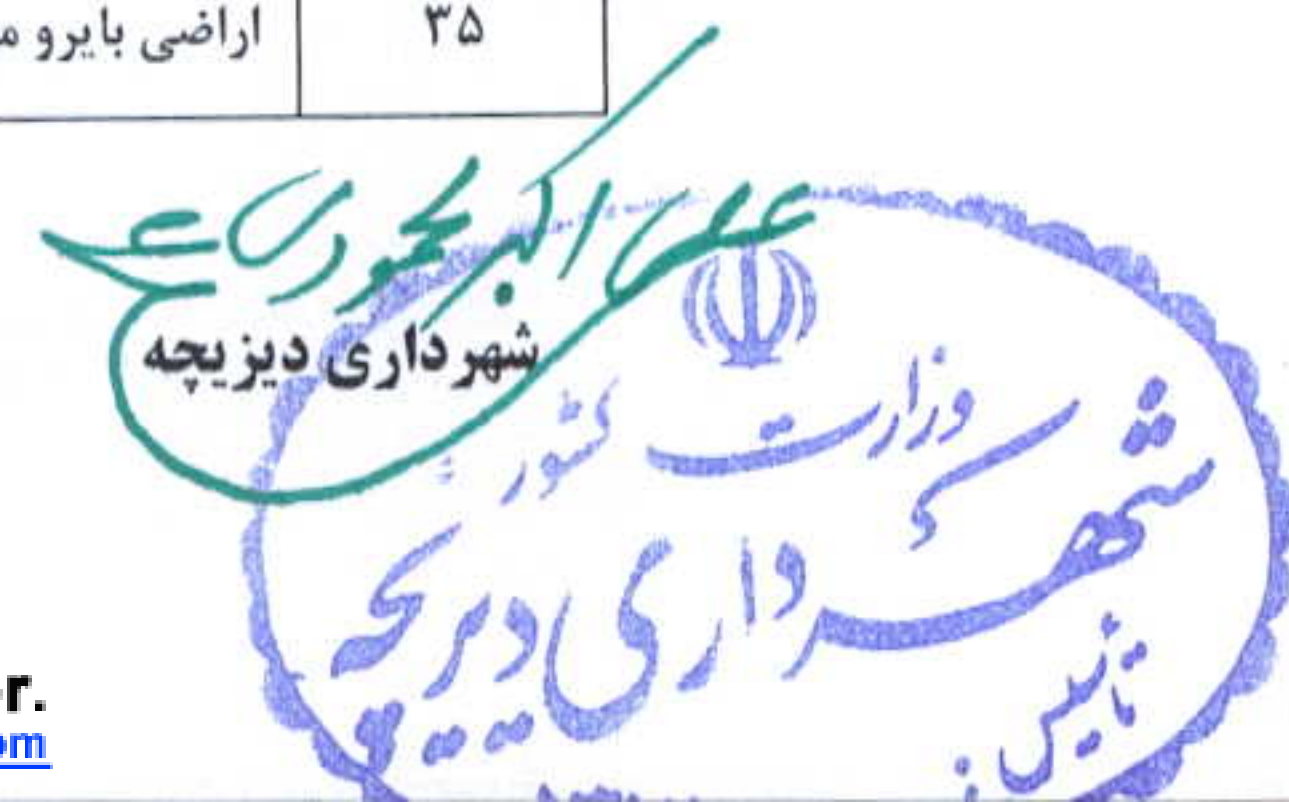 ۳۵ اراضی بایرو م
علی اکبر محمودی
شهرداری دیزیچه
وزارت کشور
شهرداری دیزیچه
تأسیس
r.
om